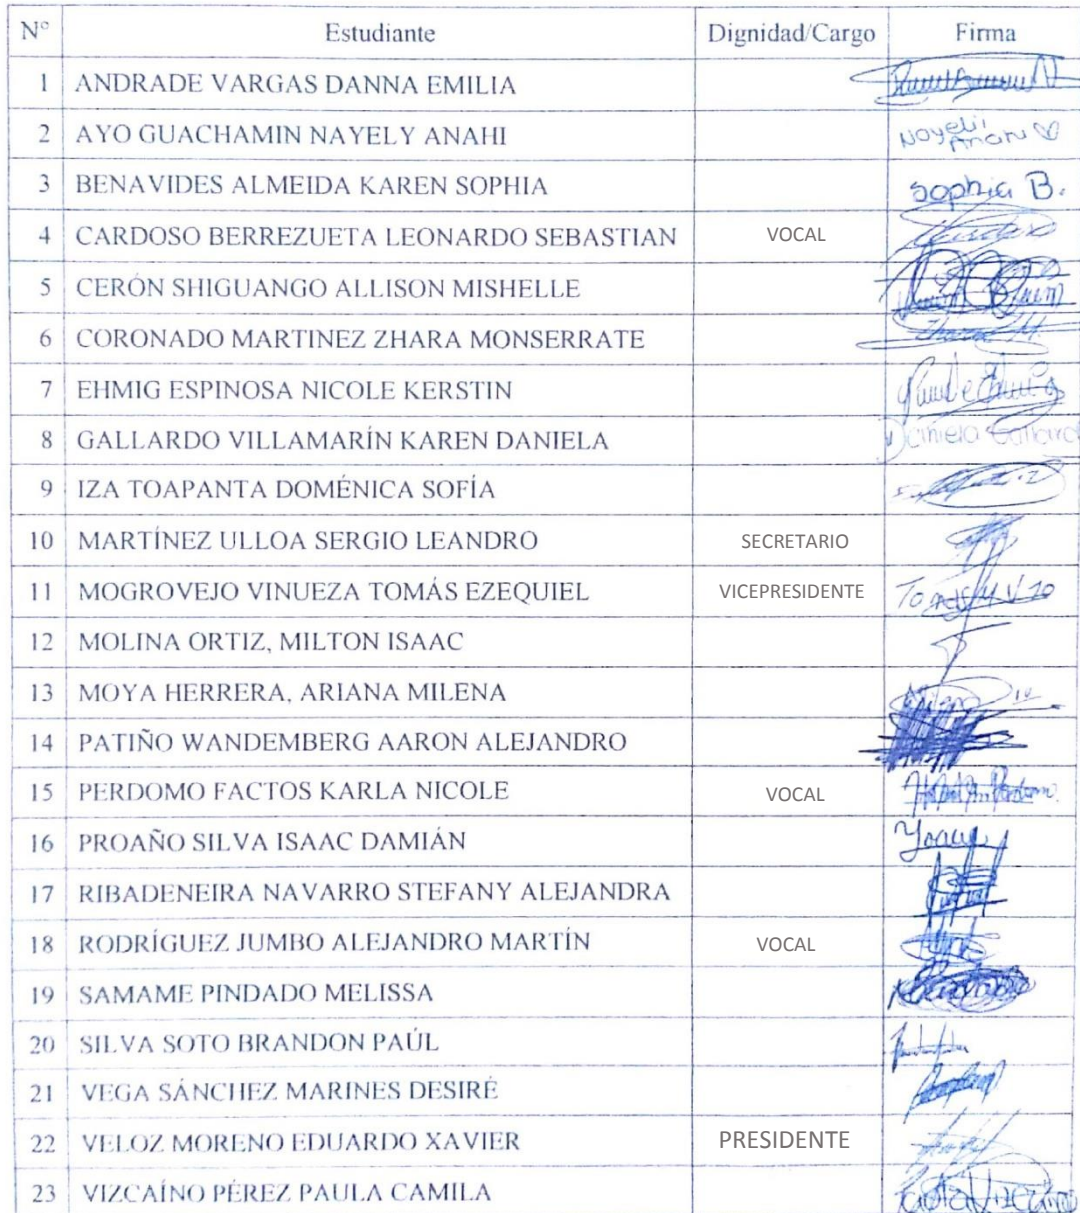 N° Estudiante Dignidad/Cargo Firma
1 ANDRADE VARGAS DANNA EMILIA
2 AYO GUACHAMIN NAYELY ANAHI
3 BENAVIDES ALMEIDA KAREN SOPHIA Sophia B.
4 CARDOSO BERREZUETA LEONARDO SEBASTIAN VOCAL
5 CERÓN SHIGUANGO ALLISON MISHELLE
6 CORONADO MARTINEZ ZHARA MONSERRATE
7 EHMIG ESPINOSA NICOLE KERSTIN
8 GALLARDO VILLAMARÍN KAREN DANIELA Daniela Gallardo
9 IZA TOAPANTA DOMÉNICA SOFÍA
10 MARTÍNEZ ULLOA SERGIO LEANDRO SECRETARIO
11 MOGROVEJO VINUEZA TOMÁS EZEQUIEL VICEPRESIDENTE
12 MOLINA ORTIZ, MILTON ISAAC
13 MOYA HERRERA, ARIANA MILENA
14 PATIÑO WANDEMBERG AARON ALEJANDRO
15 PERDOMO FACTOS KARLA NICOLE VOCAL
16 PROAÑO SILVA ISAAC DAMIÁN
17 RIBADENEIRA NAVARRO STEFANY ALEJANDRA
18 RODRÍGUEZ JUMBO ALEJANDRO MARTÍN VOCAL
19 SAMAME PINDADO MELISSA
20 SILVA SOTO BRANDON PAÚL
21 VEGA SÁNCHEZ MARINES DESIRÉ
22 VELOZ MORENO EDUARDO XAVIER PRESIDENTE
23 VIZCAÍNO PÉREZ PAULA CAMILA